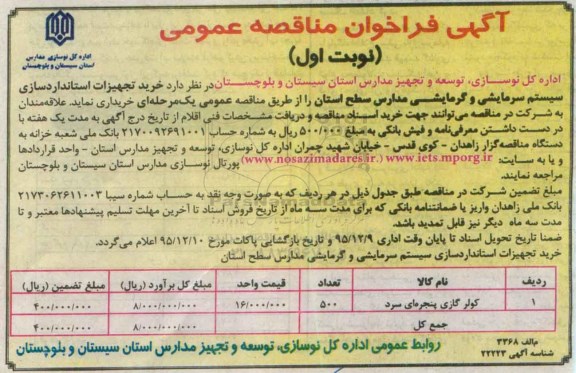 آگهی فراخوان مناقصه عمومی
(نوبت اول)
اداره کل نوسازی مدارس
استان سیستان و بلوچستان
اداره کل نوسازی، توسعه و تجهیز مدارس استان سیستان و بلوچستان در نظر دارد خرید تجهیزات استانداردسازی
سیستم سرمایشی و گرمایشی مدارس سطح استان را از طریق مناقصه عمومی یک مرحله‌ای خریداری نماید. علاقه‌مندان
به شرکت در مناقصه می‌توانند جهت خرید اسناد مناقصه و دریافت مشخصات فنی اقلام از تاریخ درج آگهی به مدت یک هفته با
در دست داشتن معرفی‌نامه و فیش بانکی به مبلغ ۵۰۰/۰۰۰ ریال به شماره حساب ۲۱۷۰۰۹۲۶۹۱۰۰۱ بانک ملی شعبه خزانه به
دستگاه مناقصه‌گزار زاهدان - کوی قدس - خیابان شهید چمران اداره کل نوسازی، توسعه و تجهیز مدارس استان - واحد قراردادها
و یا به سایت: (www.nosazimadares.ir) (www.iets.mporg.ir) پورتال نوسازی مدارس استان سیستان و بلوچستان
مراجعه نمایند.
مبلغ تضمین شرکت در مناقصه طبق جدول ذیل در هر ردیف که به صورت وجه نقد به حساب شماره سیبا ۲۱۷۳۰۶۲۶۱۱۰۰۳
بانک ملی زاهدان واریز یا ضمانتنامه بانکی که برای مدت سه ماه از تاریخ فروش اسناد تا آخرین مهلت تسلیم پیشنهادها معتبر و تا
مدت سه ماه دیگر نیز قابل تمدید باشد.
ضمنا تاریخ تحویل اسناد تا پایان وقت اداری ۹۵/۱۲/۹ و تاریخ بازگشایی پاکات مورخ ۹۵/۱۲/۱۰ اعلام می‌گردد.
خرید تجهیزات استانداردسازی سیستم سرمایشی و گرمایشی مدارس سطح استان
ردیف نام کالا تعداد قیمت واحد مبلغ کل برآورد (ریال) مبلغ تضمین (ریال)
۱ کولر گازی پنجره‌ای سرد ۵۰۰ ۱۶/۰۰۰/۰۰۰ ۸/۰۰۰/۰۰۰/۰۰۰ ۴۰۰/۰۰۰/۰۰۰
جمع کل ۸/۰۰۰/۰۰۰/۰۰۰ ۴۰۰/۰۰۰/۰۰۰
م‌الف ۳۳۶۸
شناسه آگهی ۲۲۲۲۳
روابط عمومی اداره کل نوسازی، توسعه و تجهیز مدارس استان سیستان و بلوچستان